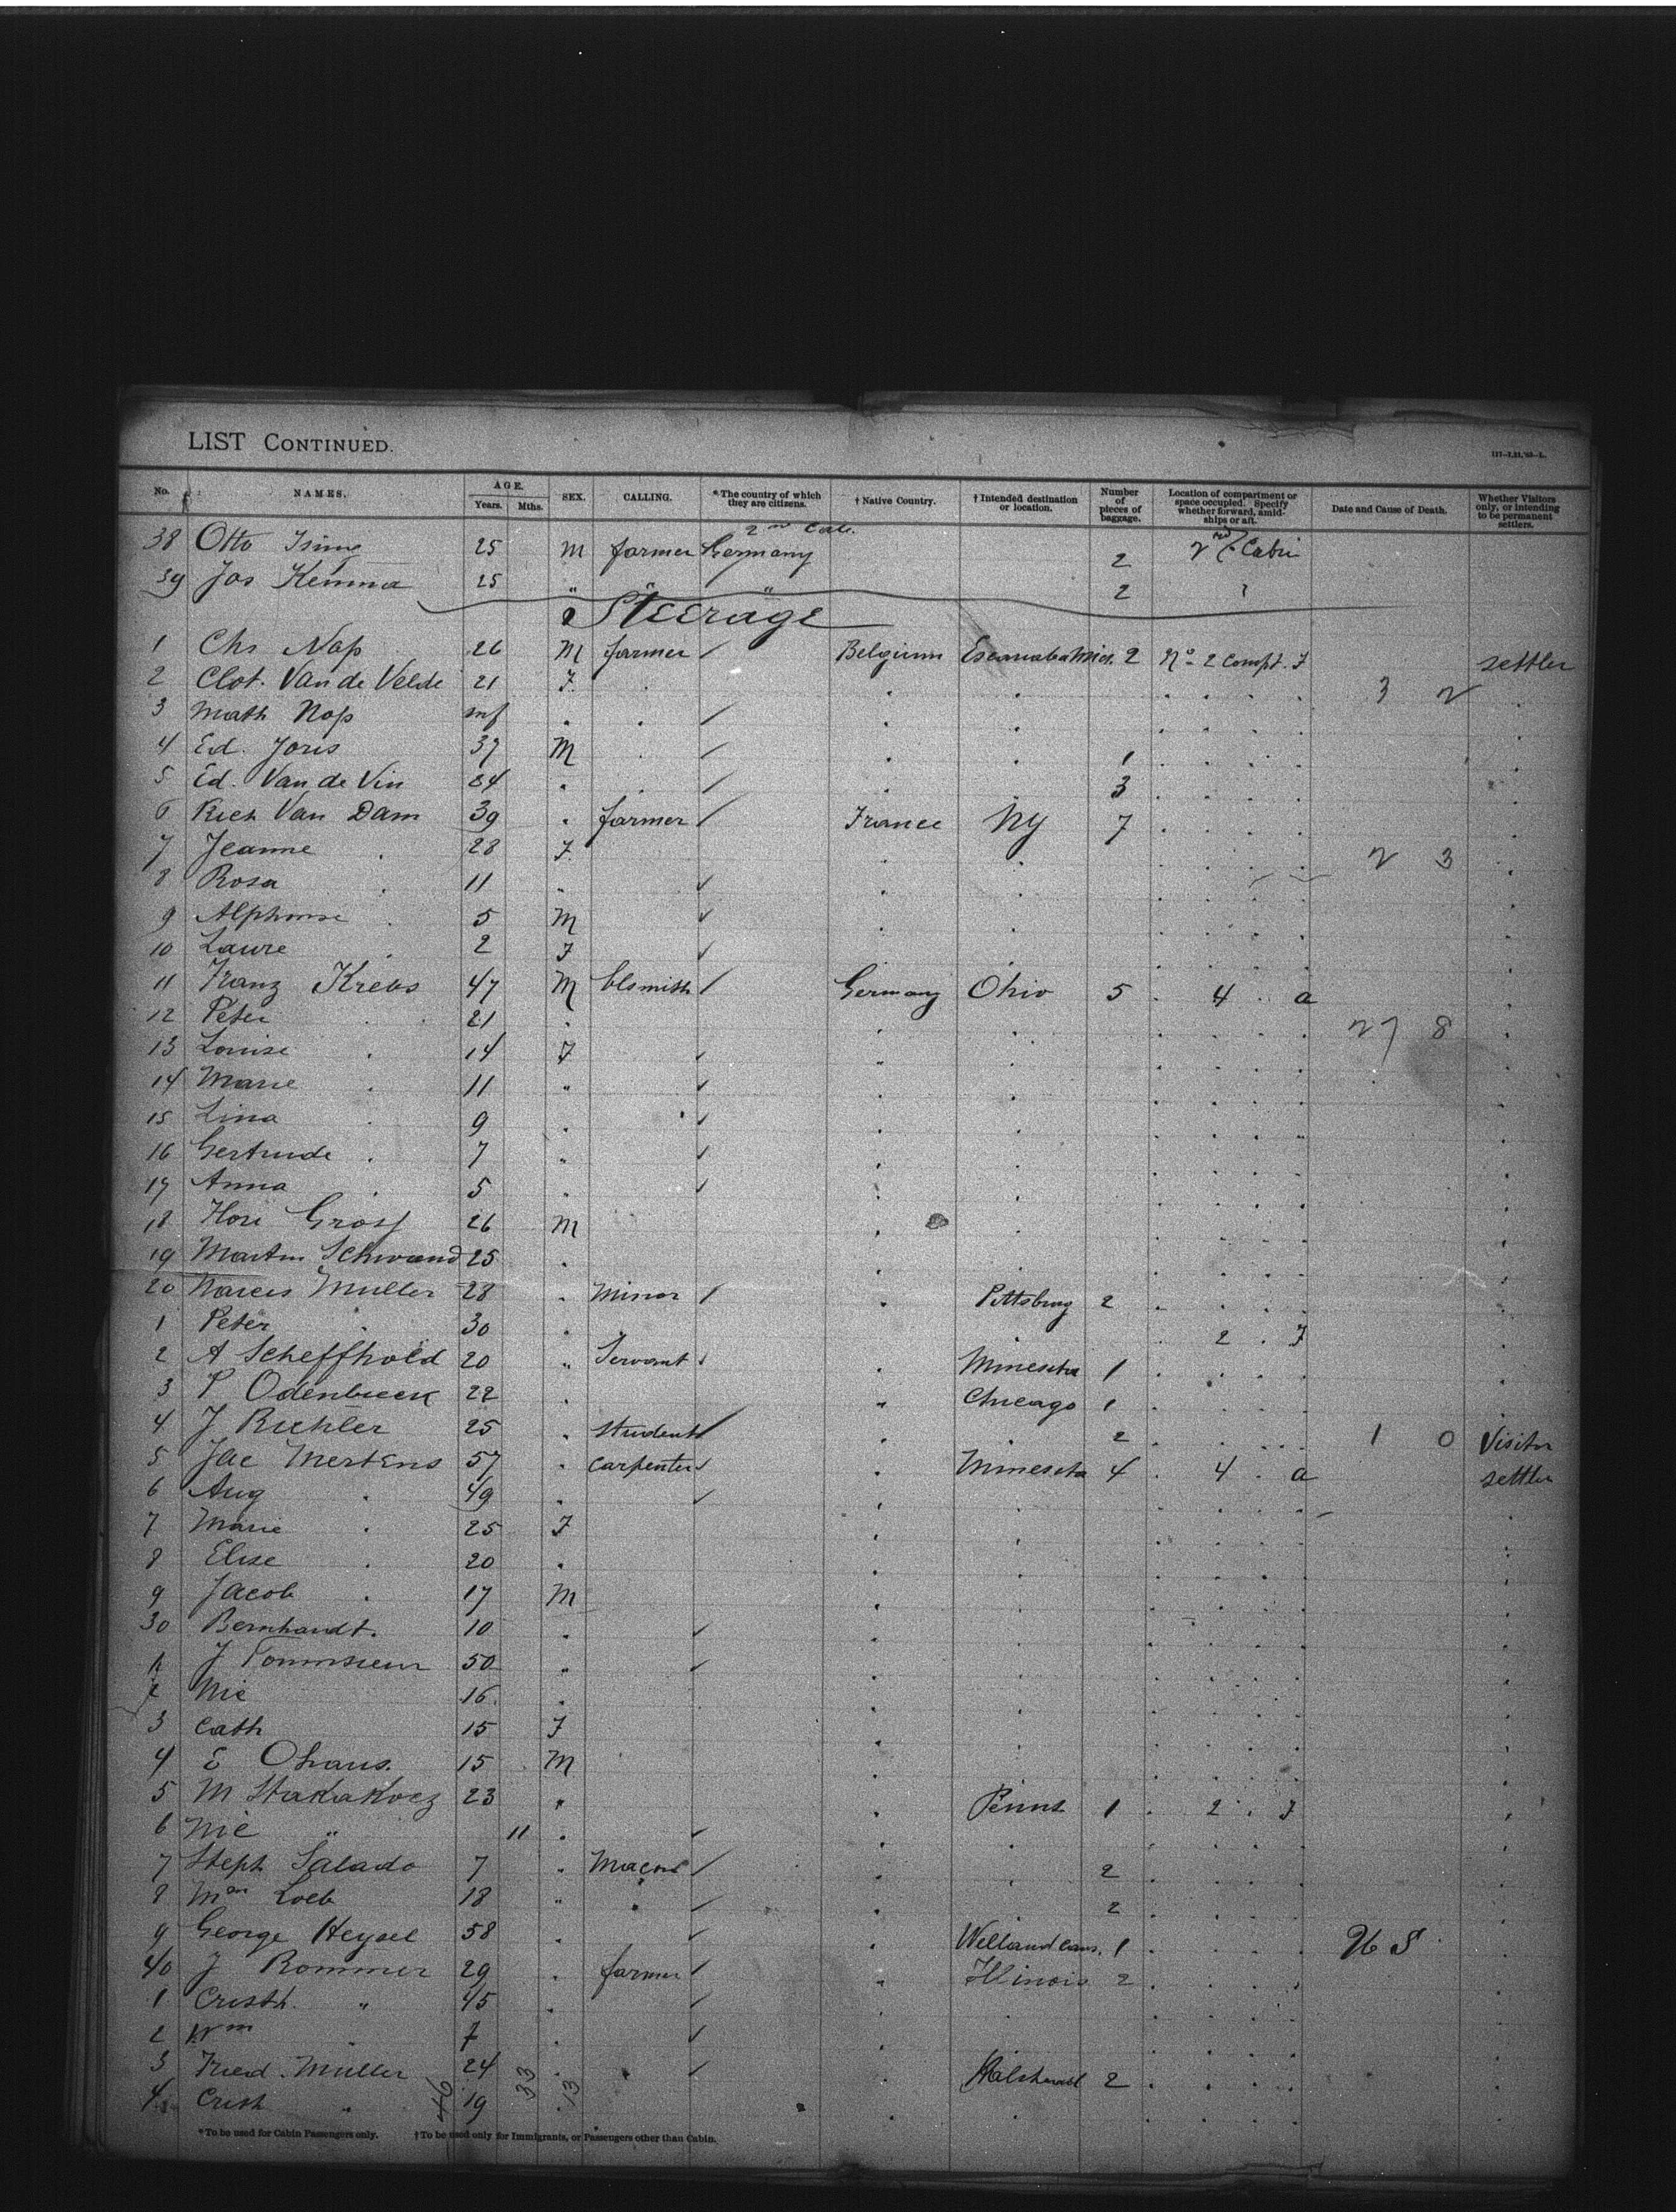 LIST CONTINUED.
117-1,11,'93-L.
No. NAMES. AGE. Years. Mths. SEX. CALLING. *The country of which they are citizens. †Native Country. †Intended destination or location. Number of pieces of baggage. Location of compartment or space occupied. Specify whether forward, amidships or aft. Date and Cause of Death. Whether Visitors only, or intending to be permanent settlers.
2nd Cab.
38 Otto 25 M farmer Germany 2 2nd Cabi
39 Jos Kemma 25 " " " 2
Steerage
1 Chs Nop 26 M farmer / Belgium Escanaba Mich. 2 No 2 Compt. F settler
2 Clot. Van de Velde 21 F . . . . . . . 3 2 .
3 Math Nop inf . . / . . . . . . .
4 Ed. Joris 37 M . / . . 1 . . . . .
5 Ed. Van de Vin 34 . . / . . 3 . . . . .
6 Rich Van Dam 39 . farmer / France NY 7 . . . . .
7 Jeanne . 28 F . . . . . . 2 3 .
8 Rosa . 11 . ✓ . . . . . . .
9 Alphonse . 5 M ✓ . . . . . . .
10 Laure . 2 F ✓ . . . . . . .
11 Franz Krebs 47 M blsmith / Germany Ohio 5 . 4 . a .
12 Peter . 21 . . . . . . . 27 8 .
13 Louise . 14 F ✓ . . . . . . .
14 Marie . 11 " ✓ . . . . . . .
15 Lina . 9 . ✓ . . . . . . .
16 Gertrude . 7 " ✓ . . . . . . .
17 Anna . 5 . ✓ . . . . . . .
18 Gross 26 M . . . . . . .
19 Martin Schwand 25 . . . . . . . .
20 Narcis Muller 28 . Minor / . Pittsburg 2 . . . . .
1 Peter . 30 . . . 2 . F .
2 A Scheffhold 20 " Servant ✓ . Minesota 1 . . . . .
3 P 22 . . Chicago 1 . . . . .
4 J Richler 25 . student / . . 2 . . . . 1 0 Visitor
5 Jac Mertens 57 . Carpenter ✓ . Minesota 4 . 4 . a settler
6 Aug . 49 . ✓ . . . . . . .
7 Marie . 25 F . . . . . . .
8 Elise . 20 . . . . . . . .
9 Jacob . 17 M . . . . . . .
30 Bernhardt. 10 . ✓ . . . . . . .
1 J 50 " ✓ . . . . . . .
2 Nic 16 . . . . . . . .
3 Cath 15 F . . . . . . .
4 E Ohaus. 15 M . . . . . . .
5 M 23 " . Penns 1 . 2 . F .
6 Nic " 11 . ✓ . . . . . . .
7 Steph Salado 7 . / . . 2 . . . . .
8 Loeb 18 " . / . . 2 . . . . .
9 George Heysel 58 . ✓ . Welland Can. 1 . . . . US .
40 J Rommer 29 . farmer / . Illinois 2 . . . . .
1 Cristh. " 45 . ✓ . . . . . . .
2 Wm . 7 . ✓ . . . . . . .
3 Fried. Müller 24 . . / . 2 . . . . .
4 Crish " 19 . . . . . . . .
46 33 13
*To be used for Cabin Passengers only. †To be used only for Immigrants, or Passengers other than Cabin.